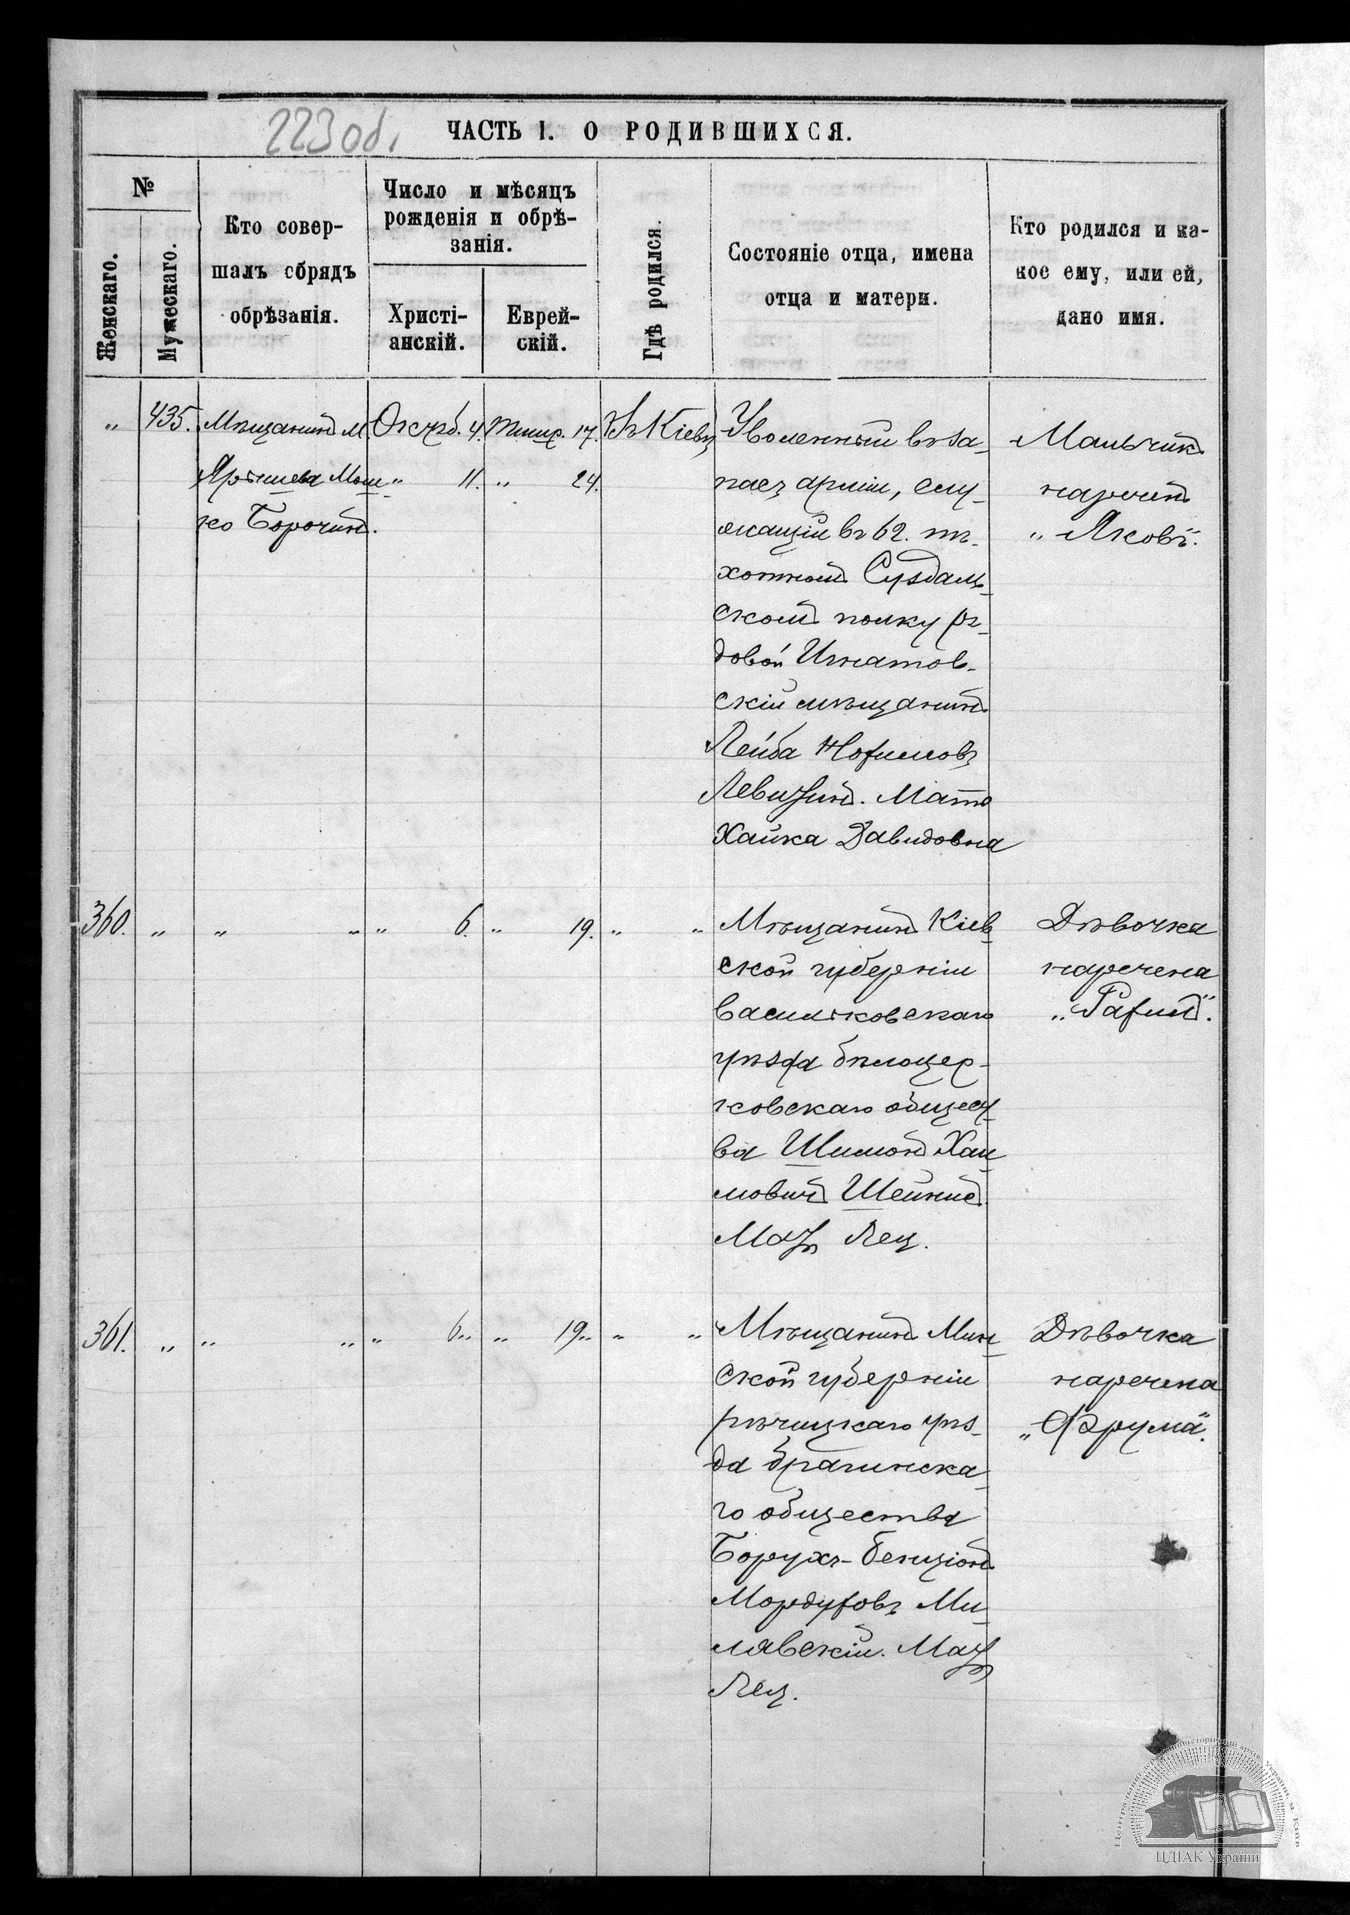 223 об.
ЧАСТЬ I. О РОДИВШИХСЯ.
№
Женскаго.
Мужескаго.
Кто совер-
шалъ обрядъ
обрѣзанія.
Число и мѣсяцъ
рожденія и обрѣ-
занія.
Христі-
анскій.
Еврей-
скій.
Гдѣ родился.
Состояніе отца, имена
отца и матери.
Кто родился и ка-
кое ему, или ей,
дано имя.
„ 435. Мѣщанинъ м.
Ярышева Мош-
ко Борочин.
Октяб. 4.
„ 11.
Тишр. 17.
„ 24.
Въ Кіевѣ
Уволенный въ за-
пасъ арміи, слу-
жащій въ 62. пѣ-
хотномъ Суздаль-
скомъ полку ря-
довой Игнатов-
скій мѣщанинъ
Лейба Нохимовъ
Левитинъ. Мать
Хайка Давидовна
Мальчикъ
нареченъ
„Яковъ".
360. „ „ „ „ 6. „ 19. „ „
Мѣщанинъ Кіев-
ской губерніи
васильковскаго
уѣзда бѣлоцер-
ковскаго общест-
ва Шимонъ Хаи-
мовичъ Шейнис
Мать Лея.
Дѣвочка
наречена
„Рахиль".
361. „ „ „ „ 6. „ 19. „ „
Мѣщанинъ Мин-
ской губерніи
рѣчицкаго уѣз-
да брагинска-
го общества
Борухъ-Бенціонъ
Мордуховъ Ми-
лявскій. Мать
Лея.
Дѣвочка
наречена
„Фрума".
ЦДІАК України